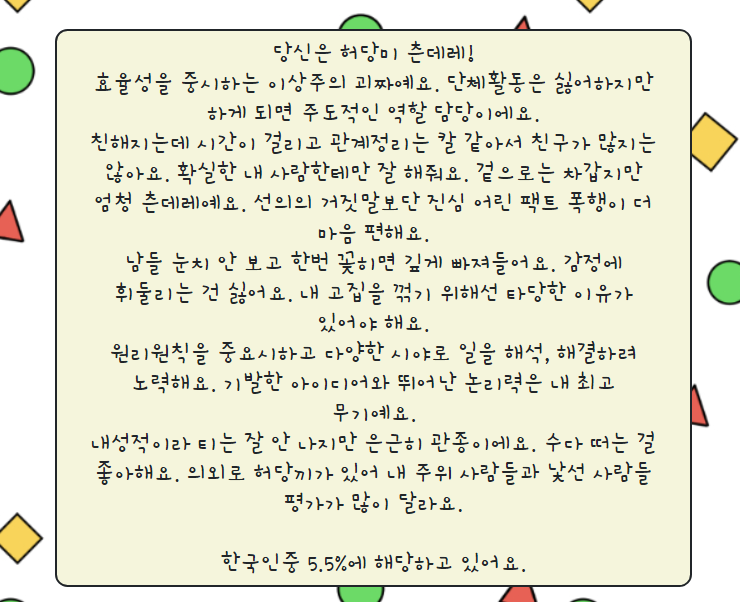 당신은 허당미 츤데레!
효율성을 중시하는 이상주의 괴짜예요. 단체활동은 싫어하지만
하게 되면 주도적인 역할 담당이에요.
친해지는데 시간이 걸리고 관계정리는 칼 같아서 친구가 많지는
않아요. 확실한 내 사람한테만 잘 해줘요. 겉으로는 차갑지만
엄청 츤데레예요. 선의의 거짓말보단 진심 어린 팩트 폭행이 더
마음 편해요.
남들 눈치 안 보고 한번 꽂히면 깊게 빠져들어요. 감정에
휘둘리는 건 싫어요. 내 고집을 꺾기 위해선 타당한 이유가
있어야 해요.
원리원칙을 중요시하고 다양한 시야로 일을 해석, 해결하려
노력해요. 기발한 아이디어와 뛰어난 논리력은 내 최고
무기예요.
내성적이라 티는 잘 안 나지만 은근히 관종이에요. 수다 떠는 걸
좋아해요. 의외로 허당끼가 있어 내 주위 사람들과 낯선 사람들
평가가 많이 달라요.
한국인중 5.5%에 해당하고 있어요.